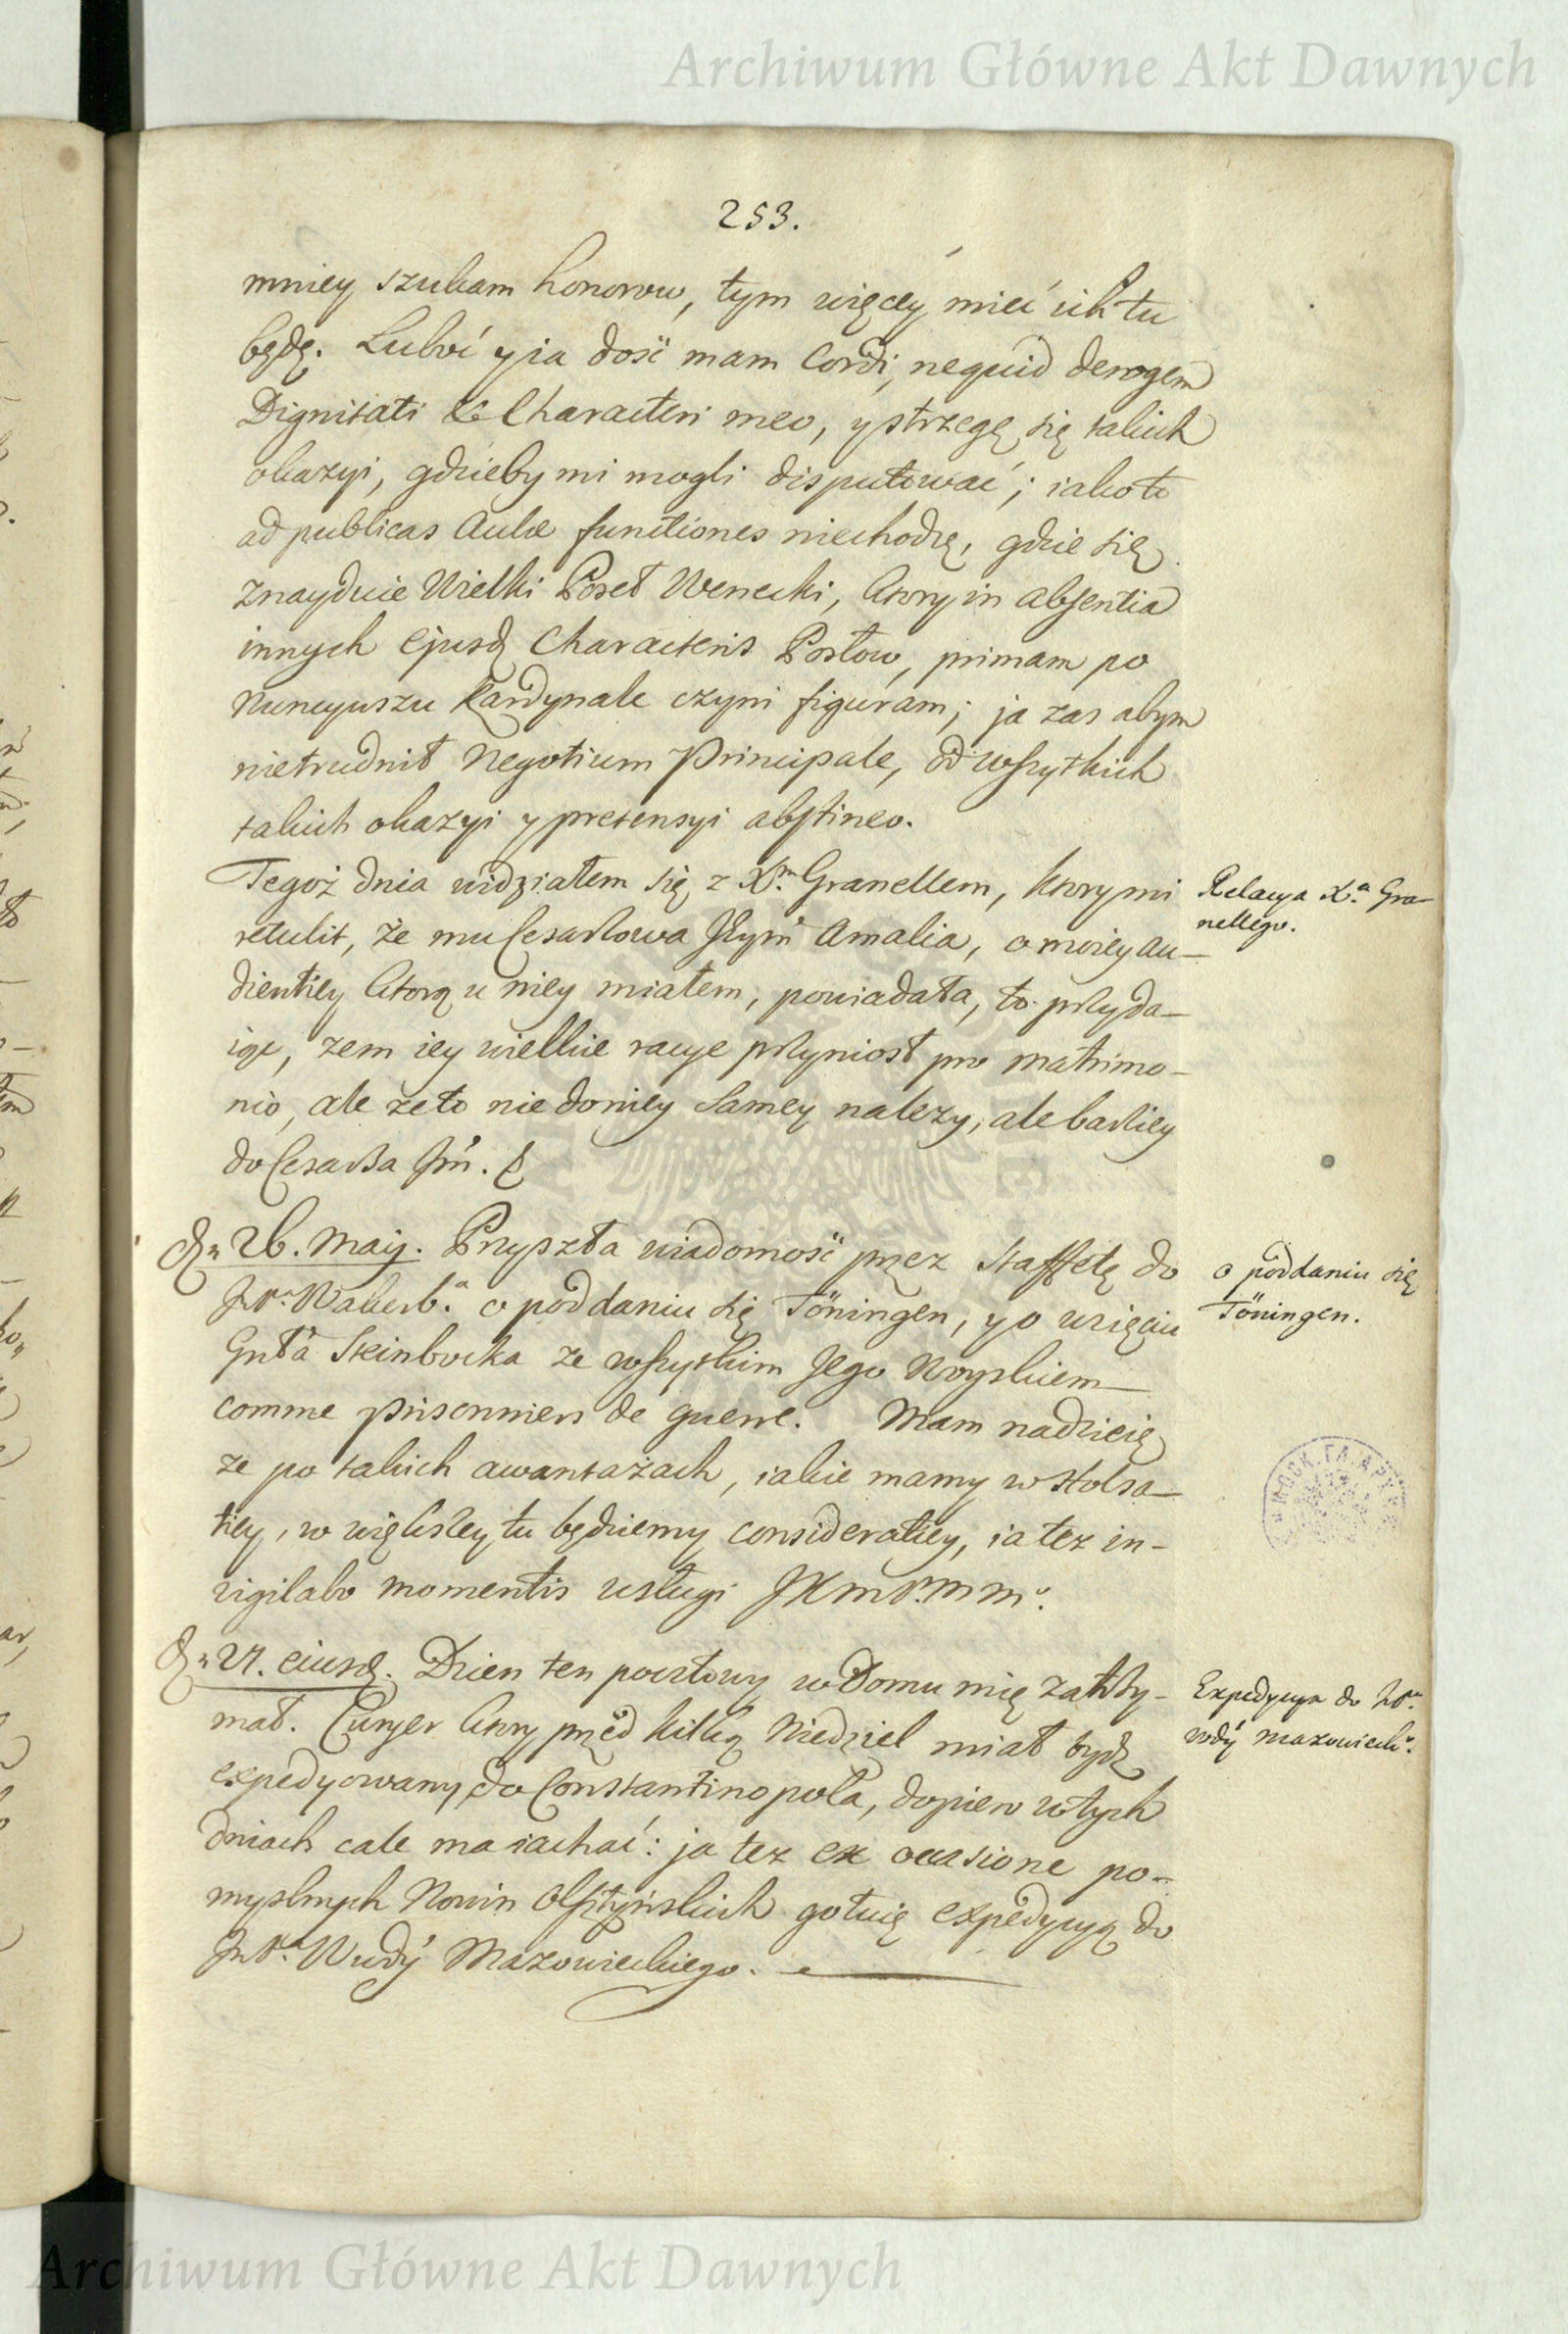 Archiwum Główne Akt Dawnych
253.
mniey szukam honorow, tym więcey mieć ich tu
będę. Luboć y ia dość mam Cordi, nequid derogem
Dignitati & Characteri meo, y strzegę się takich
okazyi, gdzieby mi mogli disputować; iako to
ad publicas Aulæ functiones niechodzę, gdzie się
znayduie Wielki Poseł Wenecki, ktory in absentia
innych ejusd. Characteris Posłow, primam po
Nuncyuszu Kardynale czyni figuram; ja zas abym
nietrudnił Negotium Principale, od wszytkich
takich okazyi y pretensyi abstineo.
Tegoż dnia widziałem się z Xm. Granellem, ktory mi
retulit, że mu Cesarzowa Jeym Amalia, o moiey au-
dientiey ktorą u niey miałem, powiadała, to przyda-
iąc, zem iey wielkie racye przyniosł pro matrimo-
nio, ale ze to nie do niey Samey nalezy, ale barziey
do Cesarza Jm.
Relacya Xa. Gra-
nellego.
26. Maij. Przyszła wiadomość przez Staffetę do
o poddaniu się Töningen, y o wzięciu
Gnła Steinbocka ze wszytkim Jego Woyskiem
comme prisonniers de guerre. Mam nadzieię
ze po takich awantażach, iakie mamy w Holsa-
tiey, w większey tu będziemy consideratiey, ia tez in-
vigilabo momentis usługi JKmP.mm.
o poddaniu się
Töningen.
27. eiusd. Dzien ten pocztowy w Domu mię zatrzy-
mał. Curyer ktory przed kilką Niedziel miał bydz
expedyowany do Constantinopola, dopiero w tych
dniach cale ma iachać: ja tez ex occasione po-
myslnych Nowin Olsztyńskich gotuię expedycyą do
Mazowieckiego.
Expedycya do
Mazowieck.
МОСК.ГЛ.АРХ
Archiwum Główne Akt Dawnych